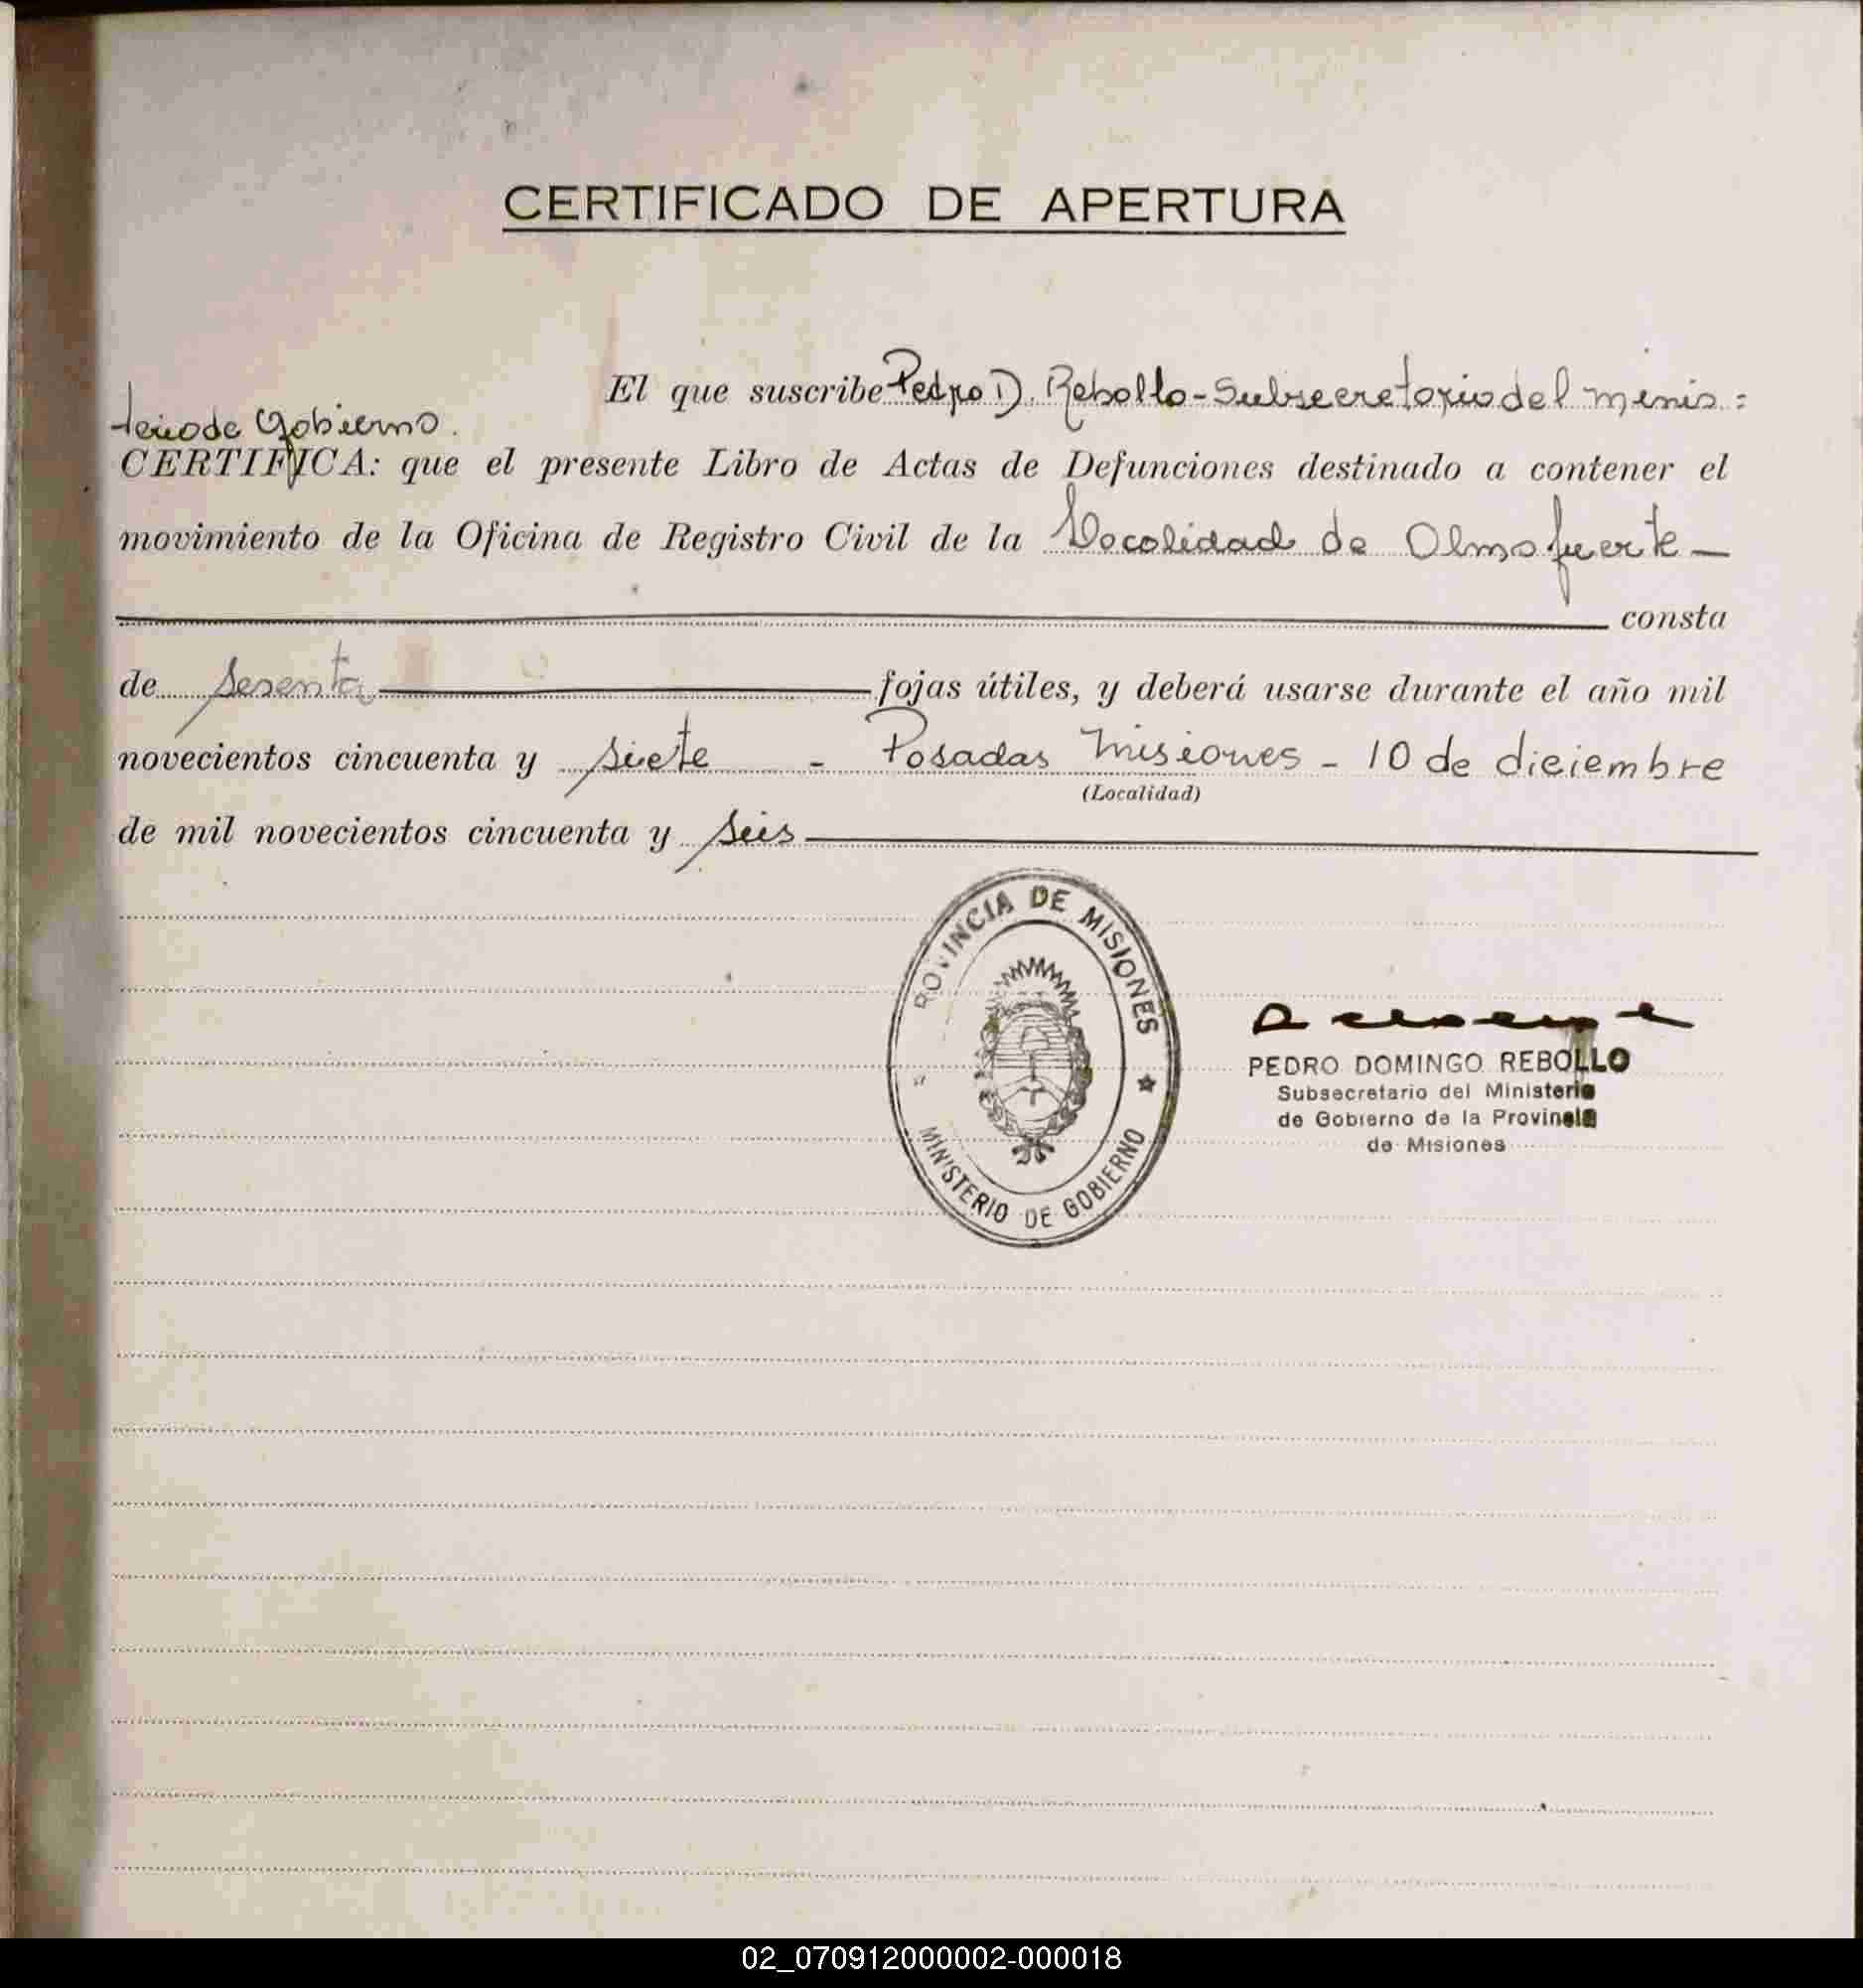 CERTIFICADO DE APERTURA
El que suscribe Pedro D. Rebollo - Subsecretario del Minis=
terio de Gobierno.
CERTIFICA: que el presente Libro de Actas de Defunciones destinado a contener el
movimiento de la Oficina de Registro Civil de la Localidad de Olmafuerte —
consta
de Sesenta fojas útiles, y deberá usarse durante el año mil
novecientos cincuenta y siete - Posadas Misiones - 10 de diciembre
(Localidad)
de mil novecientos cincuenta y seis
PROVINCIA DE MISIONES
MINISTERIO DE GOBIERNO
PEDRO DOMINGO REBOLLO
Subsecretario del Ministerio
de Gobierno de la Provincia
de Misiones
02_070912000002-000018